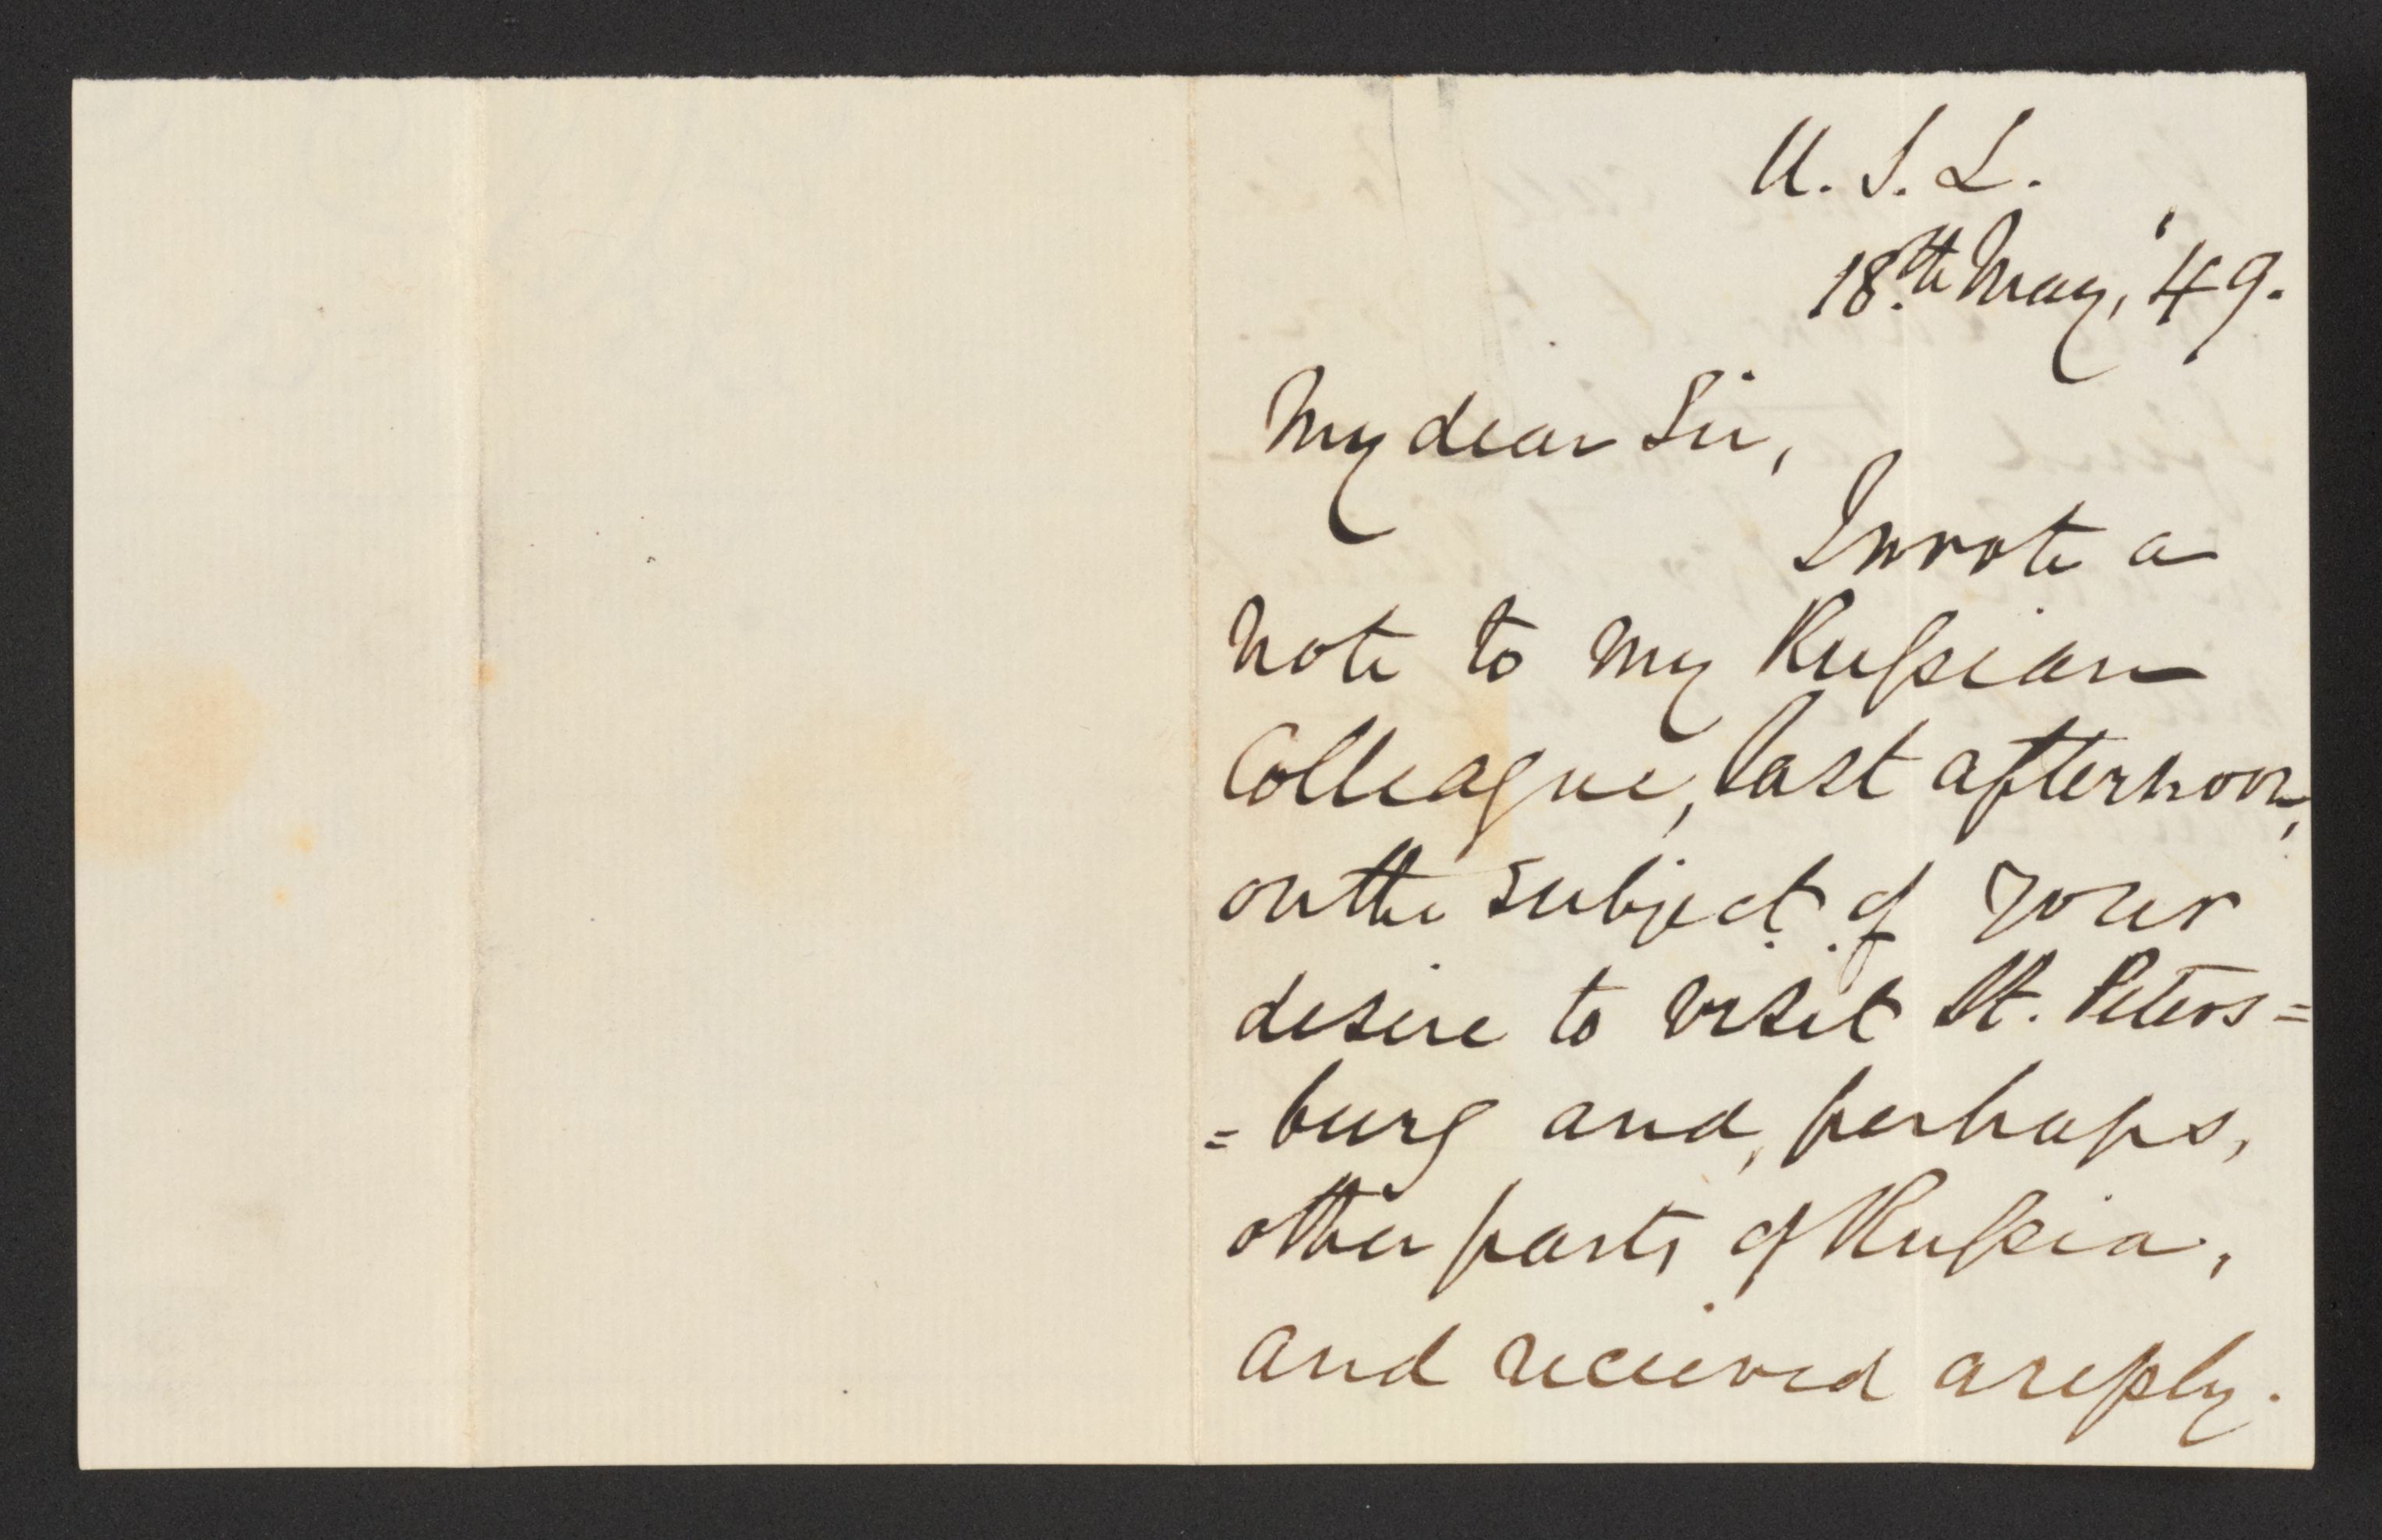 U. S. L.
18th May, '49.
My dear Sir,
I wrote a
note to my Russian
Colleague, last afternoon,
on the subject of your
desire to visit St. Peters=
=burg and, perhaps,
other parts of Russia,
and received a reply.